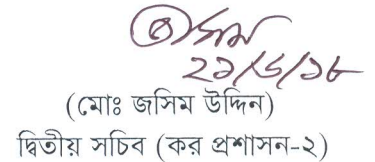 ২১/৬/১৮
(মোঃ জসিম উদ্দিন)
দ্বিতীয় সচিব (কর প্রশাসন-২)